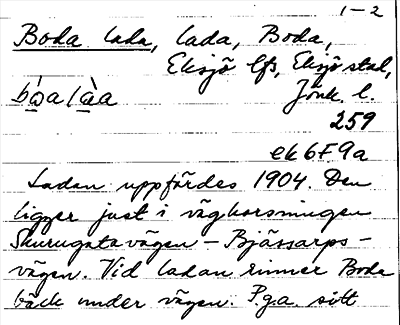 1-2
Boda lada, lada, Boda,
Eksjö lfs, Eksjö stad,
Jönk. l.
259
ek6F9a
Ladan uppfördes 1904. Den
ligger just i vägkorsningen
Skurugatavägen - Bjässarps-
vägen. Vid ladan rinner Boda
bäck under vägen. P.g.a. sitt